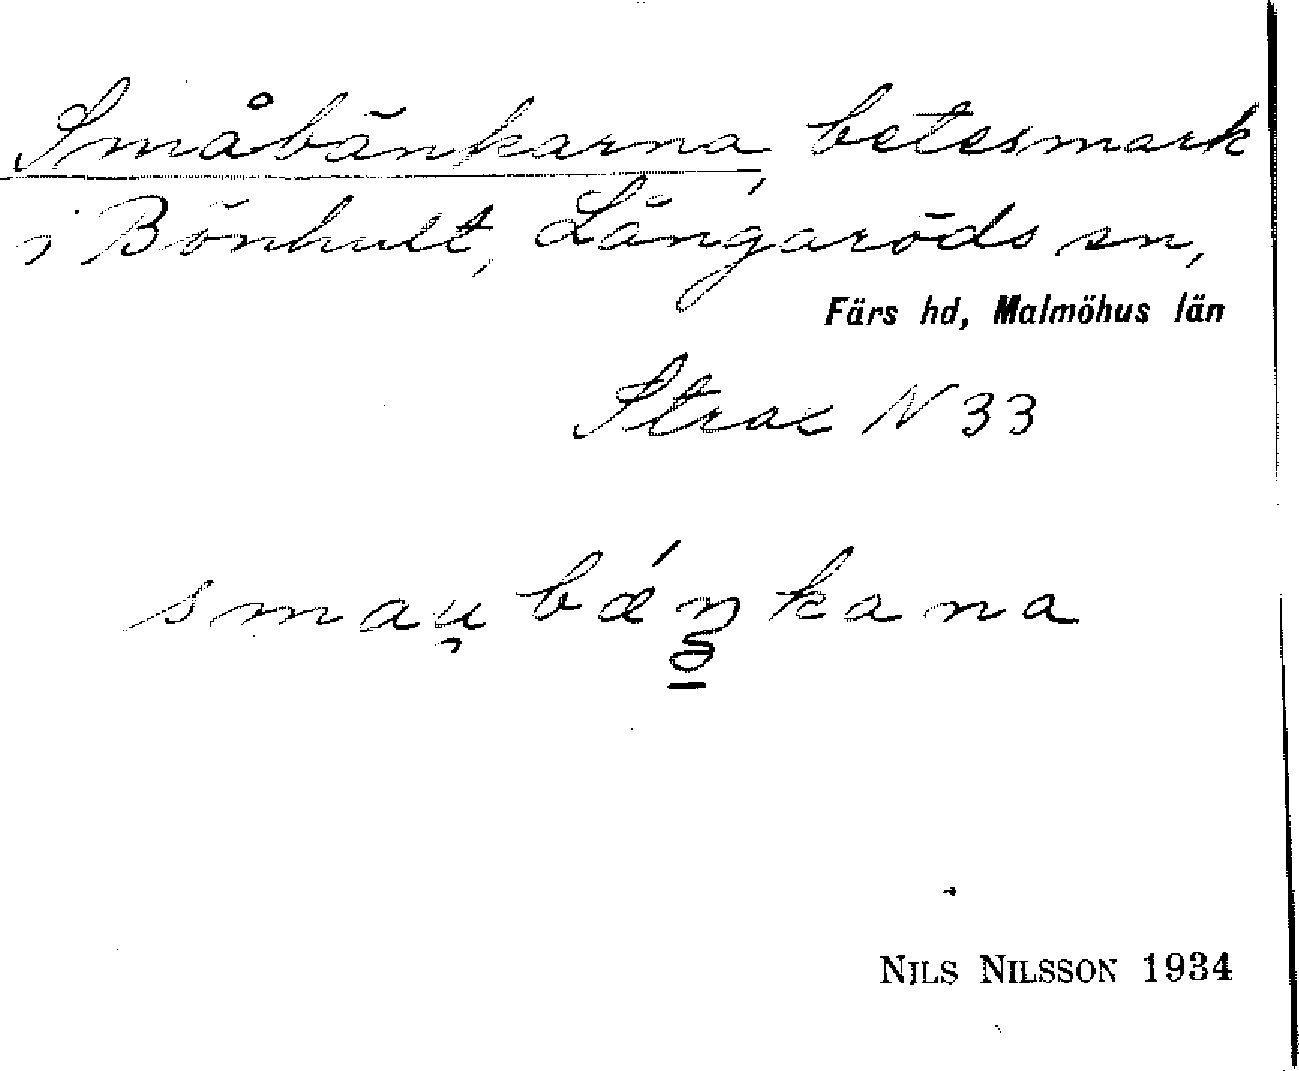 Småbänkarna, betesmark
i Bönhult, Långaröds sn,
Färs hd, Malmöhus län
Strax N 33
smau̯bǽŋkana
NILS NILSSON 1934